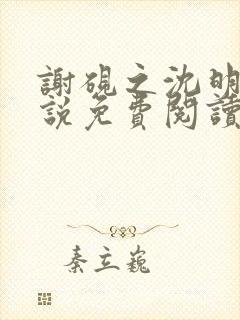 謝硯之沈明
說免費閱讀
秦立巍